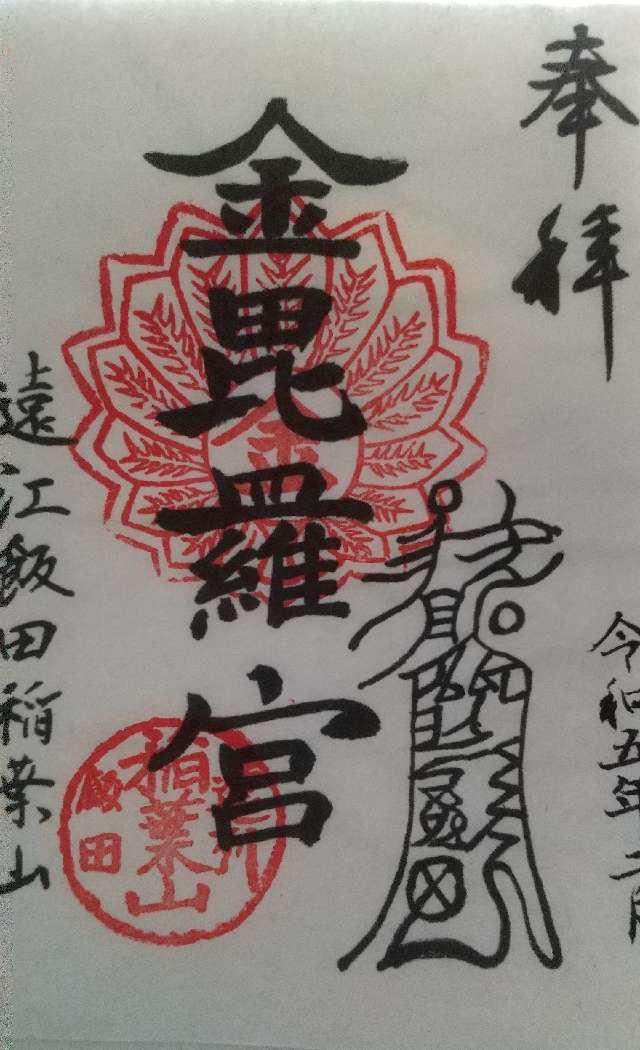 奉拝
令和五年二月
金毘羅宮
遠江飯田稲葉山
金
稲葉山
飯田